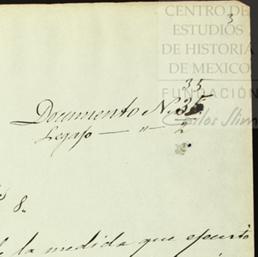 CENTRO DE
ESTUDIOS
DE HISTORIA
DE MEXICO
FUNDACIÓN
Carlos Slim
3
35
Documento N. 35
Legajo — " — 2
8.
de la medida que ejecuto